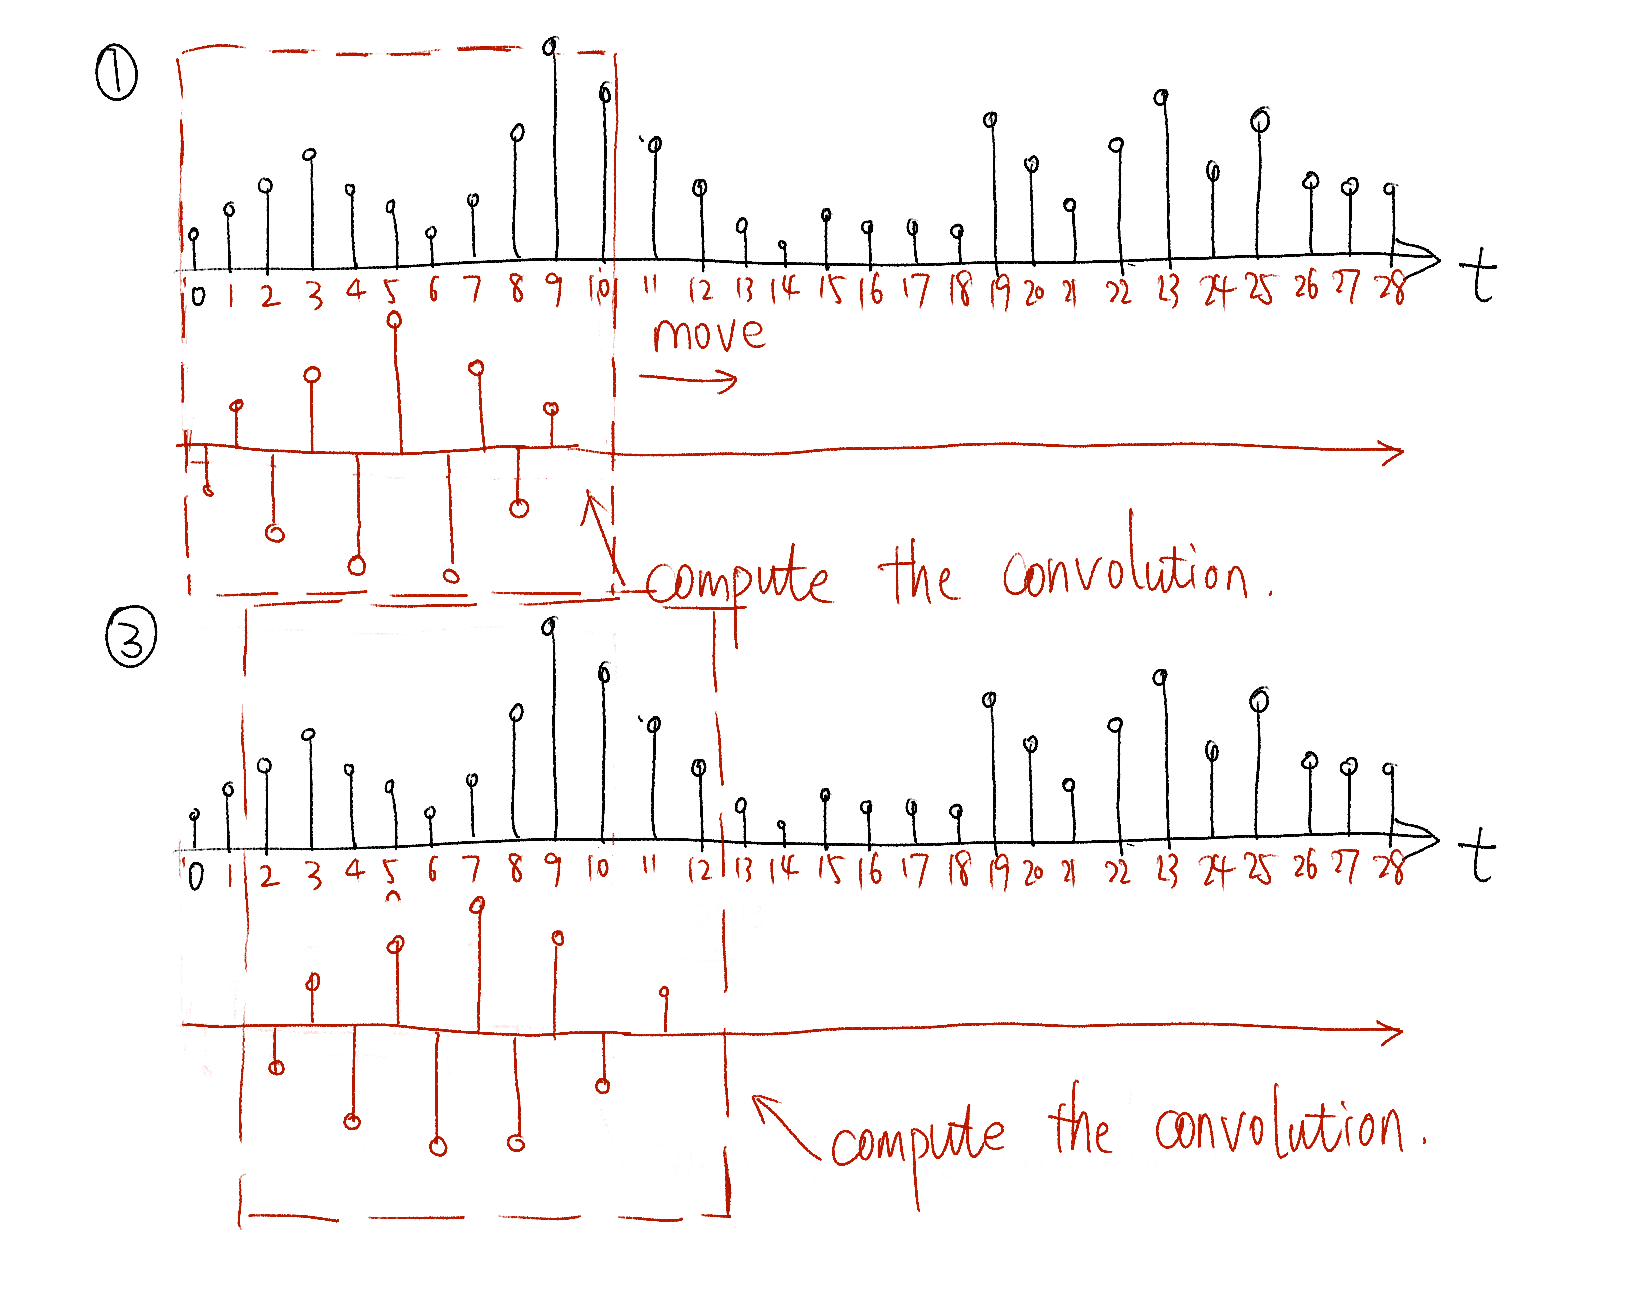 ①
t
0 1 2 3 4 5 6 7 8 9 10 11 12 13 14 15 16 17 18 19 20 21 22 23 24 25 26 27 28
move
compute the convolution.
③
t
0 1 2 3 4 5 6 7 8 9 10 11 12 13 14 15 16 17 18 19 20 21 22 23 24 25 26 27 28
compute the convolution.